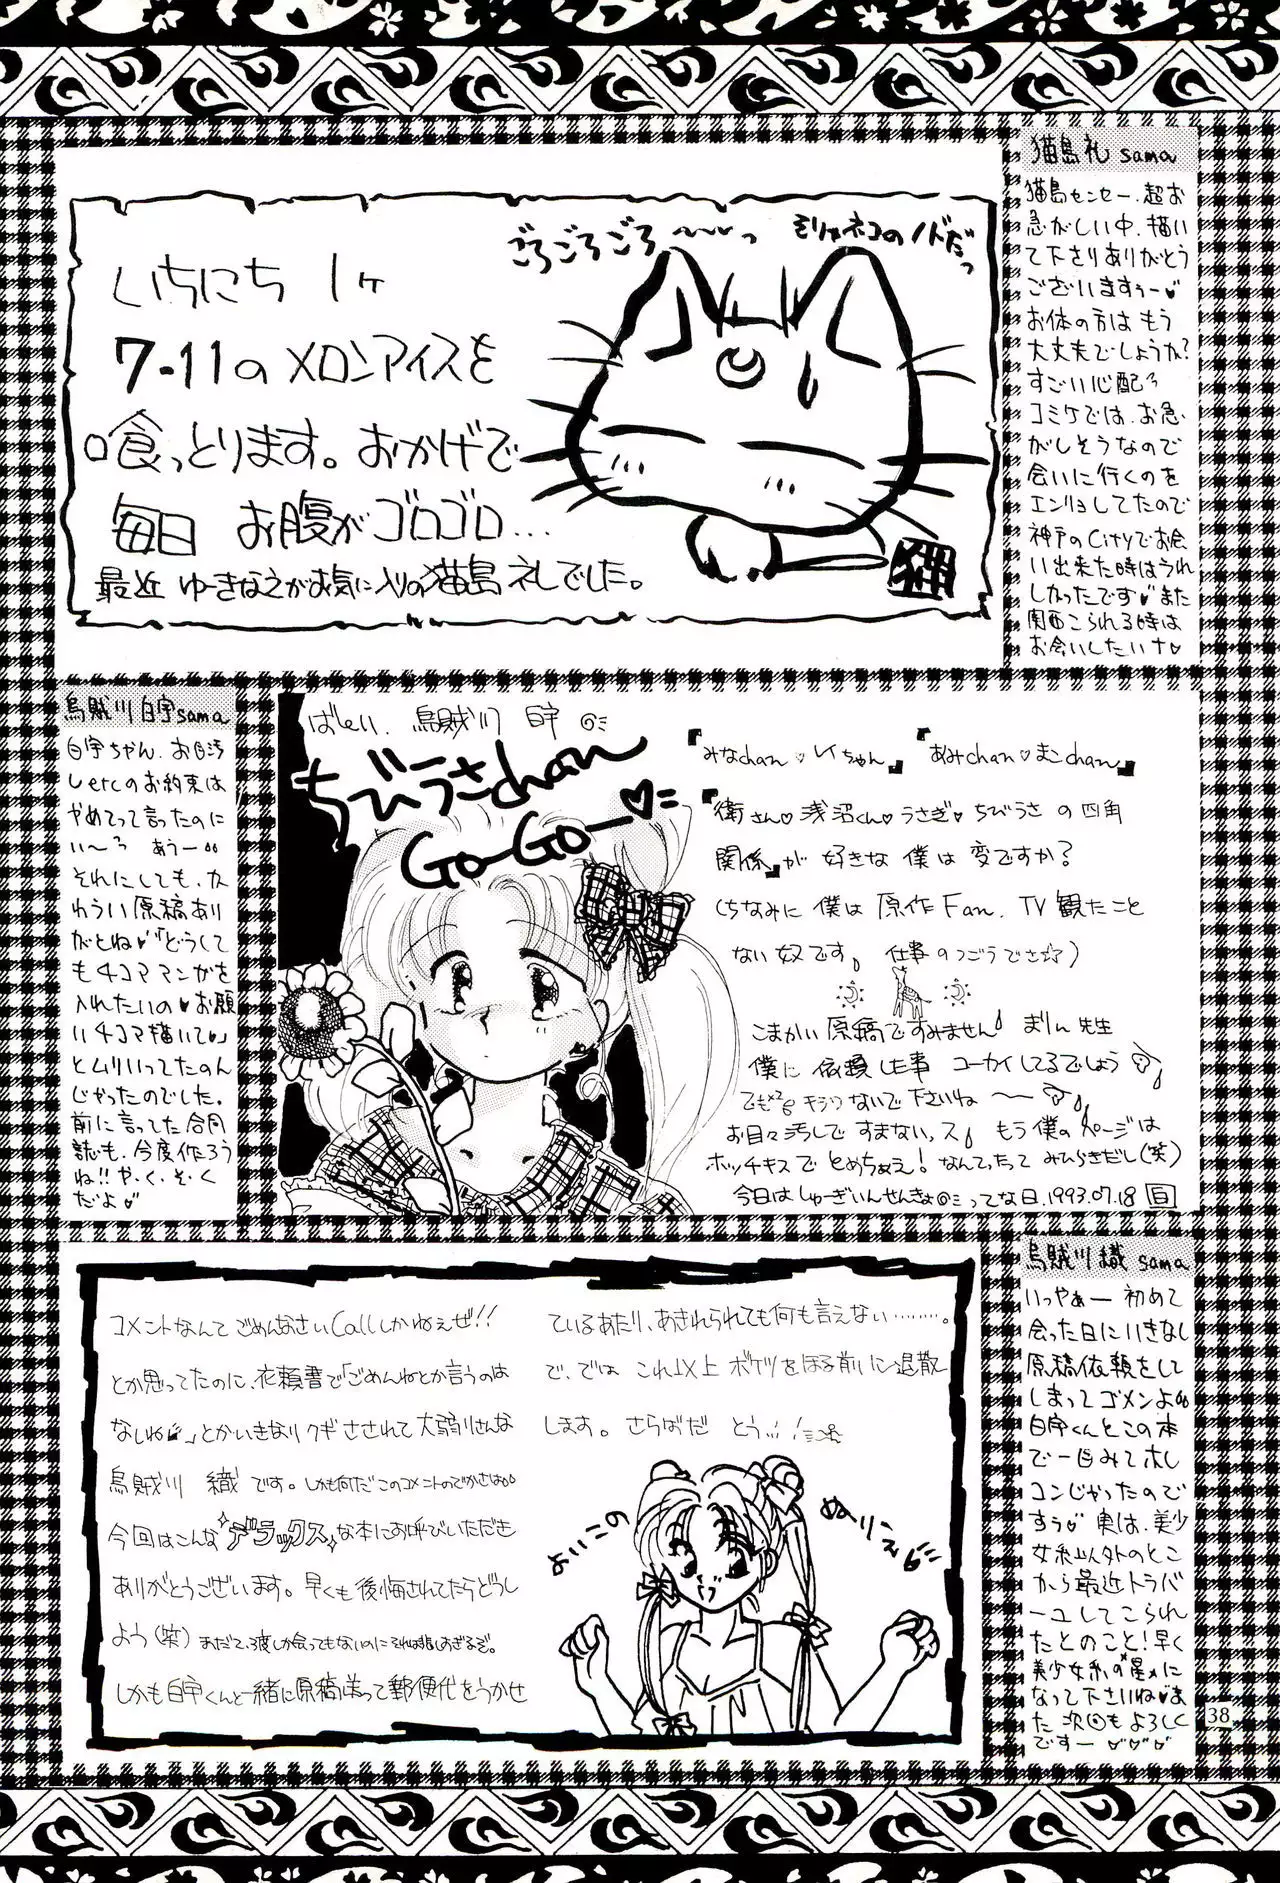 猫島礼sama
猫島センセー、超お
急がしい中、描い
て下さりありがとう
ございますぅー♥
お体の方はもう
大丈夫でしょうか?
すごい心配
コミケでは、お急
がしそうなので
会いに行くのを
エンリョしてたので
神戸のCityでお会
い出来た時はうれ
しかったです♥また
関西こられる時は
お会いしたいナ♥
ごろごろごろ〜〜〜っ
そりゃネコのノドだっ
いちにち 1ヶ
7-11のメロンアイスを
喰っとります。おかげで
毎日 お腹がゴロゴロ…
最近 ゆーきなえがお気に入りの猫島礼でした。
烏賊川白宇sama
白宇ちゃん、お目汚
しetcのお約束は
やめてって言ったのに
い〜 あうー
それにしても、カ
わうい原稿あり
がとね♥「どうして
も4コママンガを
入れたいの♥お願
い4コマ描いて♥」
とムリいってたのん
じゃったのでした。
前に言ってた合同
誌も、今度作ろう
ね!!や・く・そ・く
だよ♥
ばしい、烏賊川 白宇
ちびうさchan
Go-Go-♥
『みなchan♥レイちゃん』『あみchan♥まこchan』
『衛さん♥浅沼くん♥うさぎ♥ちびうさ の四角
関係』が好きな僕は変ですか?
(ちなみに僕は原作Fan、TV観たこと
ない奴です。仕事のつごうでさ)
こまかい原稿ですみません。まりん先生
僕に依頼した事 コーカイしてるでしょう
でも キラワないで下さいね〜
お目々汚しですまないっス。もう僕のページは
ホッチキスでとめちゃえ!なんてったって みひらきだし(笑)
今日はしゅーぎいんせんきょってな日、1993.07.18 白
烏賊川織sama
いっやぁー 初めて
会った日にいきなし
原稿依頼をして
しまってゴメンよ
白宇くんとこの本
で一目みてホレ
コンじゃったので
すぅ♥実は、美少
女系以外のとこ
から最近トラバ
ーユしてこられ
たとのこと!早く
美少女系の"星"に
なって下さいね♥ま
た次回もよろしく
ですー♥♥♥
コメントなんてごめんなさいCallしかねぇぜ!!
とか思ってたのに、依頼書で「ごめんねとか言うのは
なしね」とかいきなりクギさされて大弱りさんな
烏賊川 織です。しかも何だこのコメントのでかさは
今回はこんなデラックスな本にお呼びいただき
ありがとうございます。早くも後悔されてたらどうし
よう(笑)まだて、2度しか会ってもないのにそれは悲しすぎるぞ。
しかも白宇くんと一緒に原稿送って郵便代をうかせ
ているあたり、あきれられても何も言えない………。
で、では これ以上 ボケツをほる前に退散
します。さらばだ とう
よいこの
ぬりえ
38